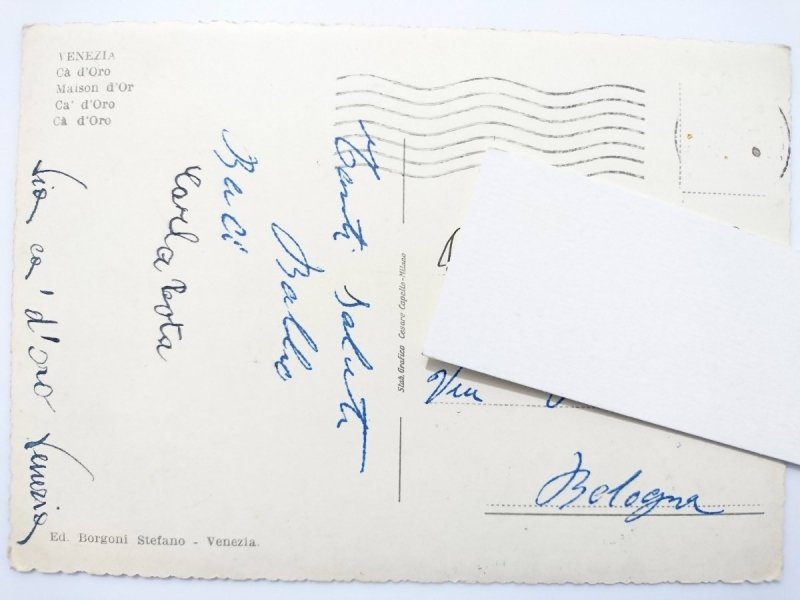 VENEZIA
Cà d'Oro
Maison d'Or
Ca' d'Oro
Cà d'Oro
Tanti saluti
Ballio
Baci
Carla Cota
ca' d'oro Venezia
Stab. Grafico Cesare Capello-Milano
Via
Bologna
Ed. Borgoni Stefano - Venezia.